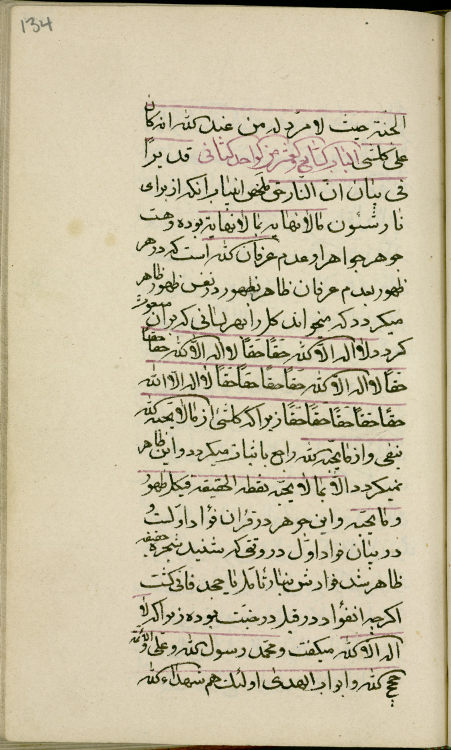 134
الجنة حیث لا مرد له من عند الله انه کان
علی کلشیء قدیرا الباب السابع والعشر من الواحد الثانی
فی بیان ان النار حق انکه از برای
نار شئون بما لا نهایه بما لا نهایه بوده وهست
جوهر جواهر او عدم عرفان الله است که در هر
ظهور بعدم عرفان ظاهر بظهور در نفس ظهور ظاهر
میگردد که میخواند کل را بهر لسانی که بر آن مبعوث
گردد لا اله الا الله حقا حقا لا اله الا الله حقا حقا
حقا لا اله الا الله حقا حقا حقا حقا لا اله الا الله
حقا حقا حقا حقا حقا زیرا که کلشیء از ما لا یحبه الله
بنفی و از ما یحبه الله راجع باثبات میگردد و این ظاهر
نمیگردد الا بما لا یحبه نقطة الحقیقة فی کل ظهور
و ما یحبه و این جوهر در قران فؤاد اول است
در بیان فؤاد اول در وقتی که شنید شجره حقیقة
ظاهر شده فؤادش
اگرچه انفؤاد در قبل درخت بوده زیرا که لا
اله الا الله میگفت و محمد رسول الله و علی والائمة
حجج الله و ابواب الهدی اولئک هم شهداء الله